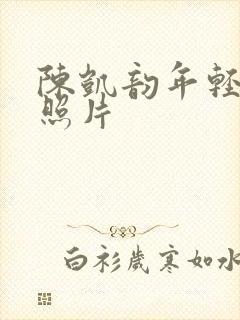 陳凱韵年輕
照片
白衫歲寒如水